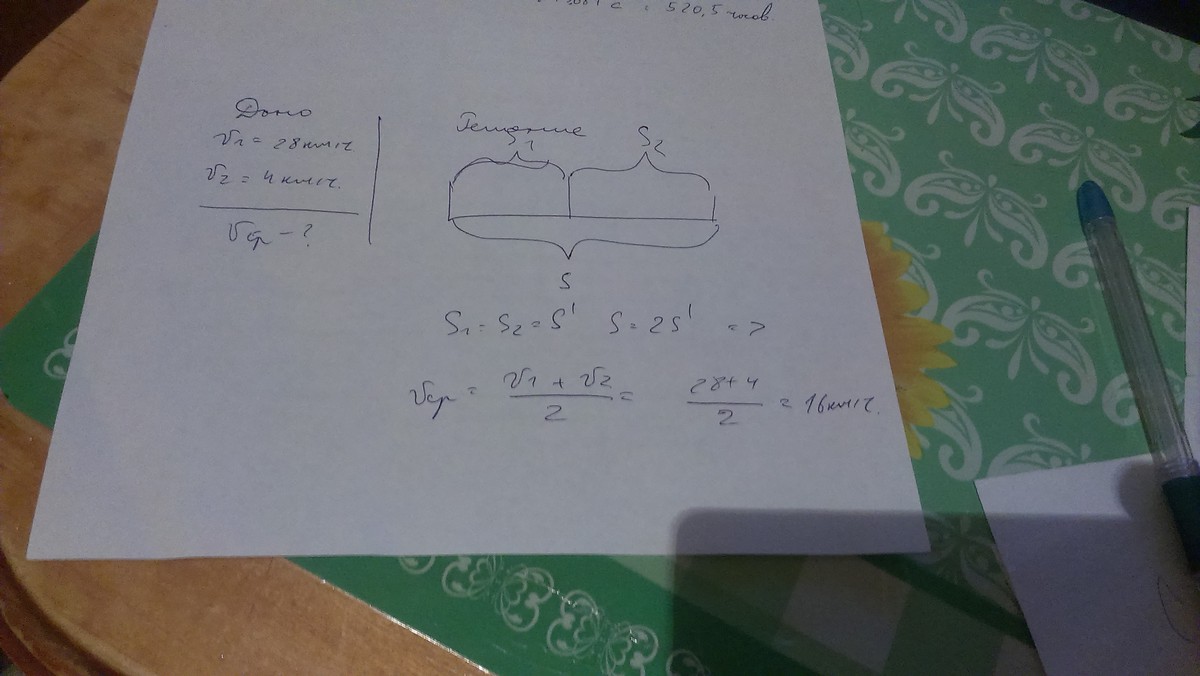 с = 520,5 часов
Дано
V1 = 28 км/ч
V2 = 4 км/ч.
Vср - ?
Решение
S1 S2
S
S1 = S2 = S' S = 2S' =>
Vср = V1 + V2 / 2 = 28+4 / 2 = 16 км/ч.